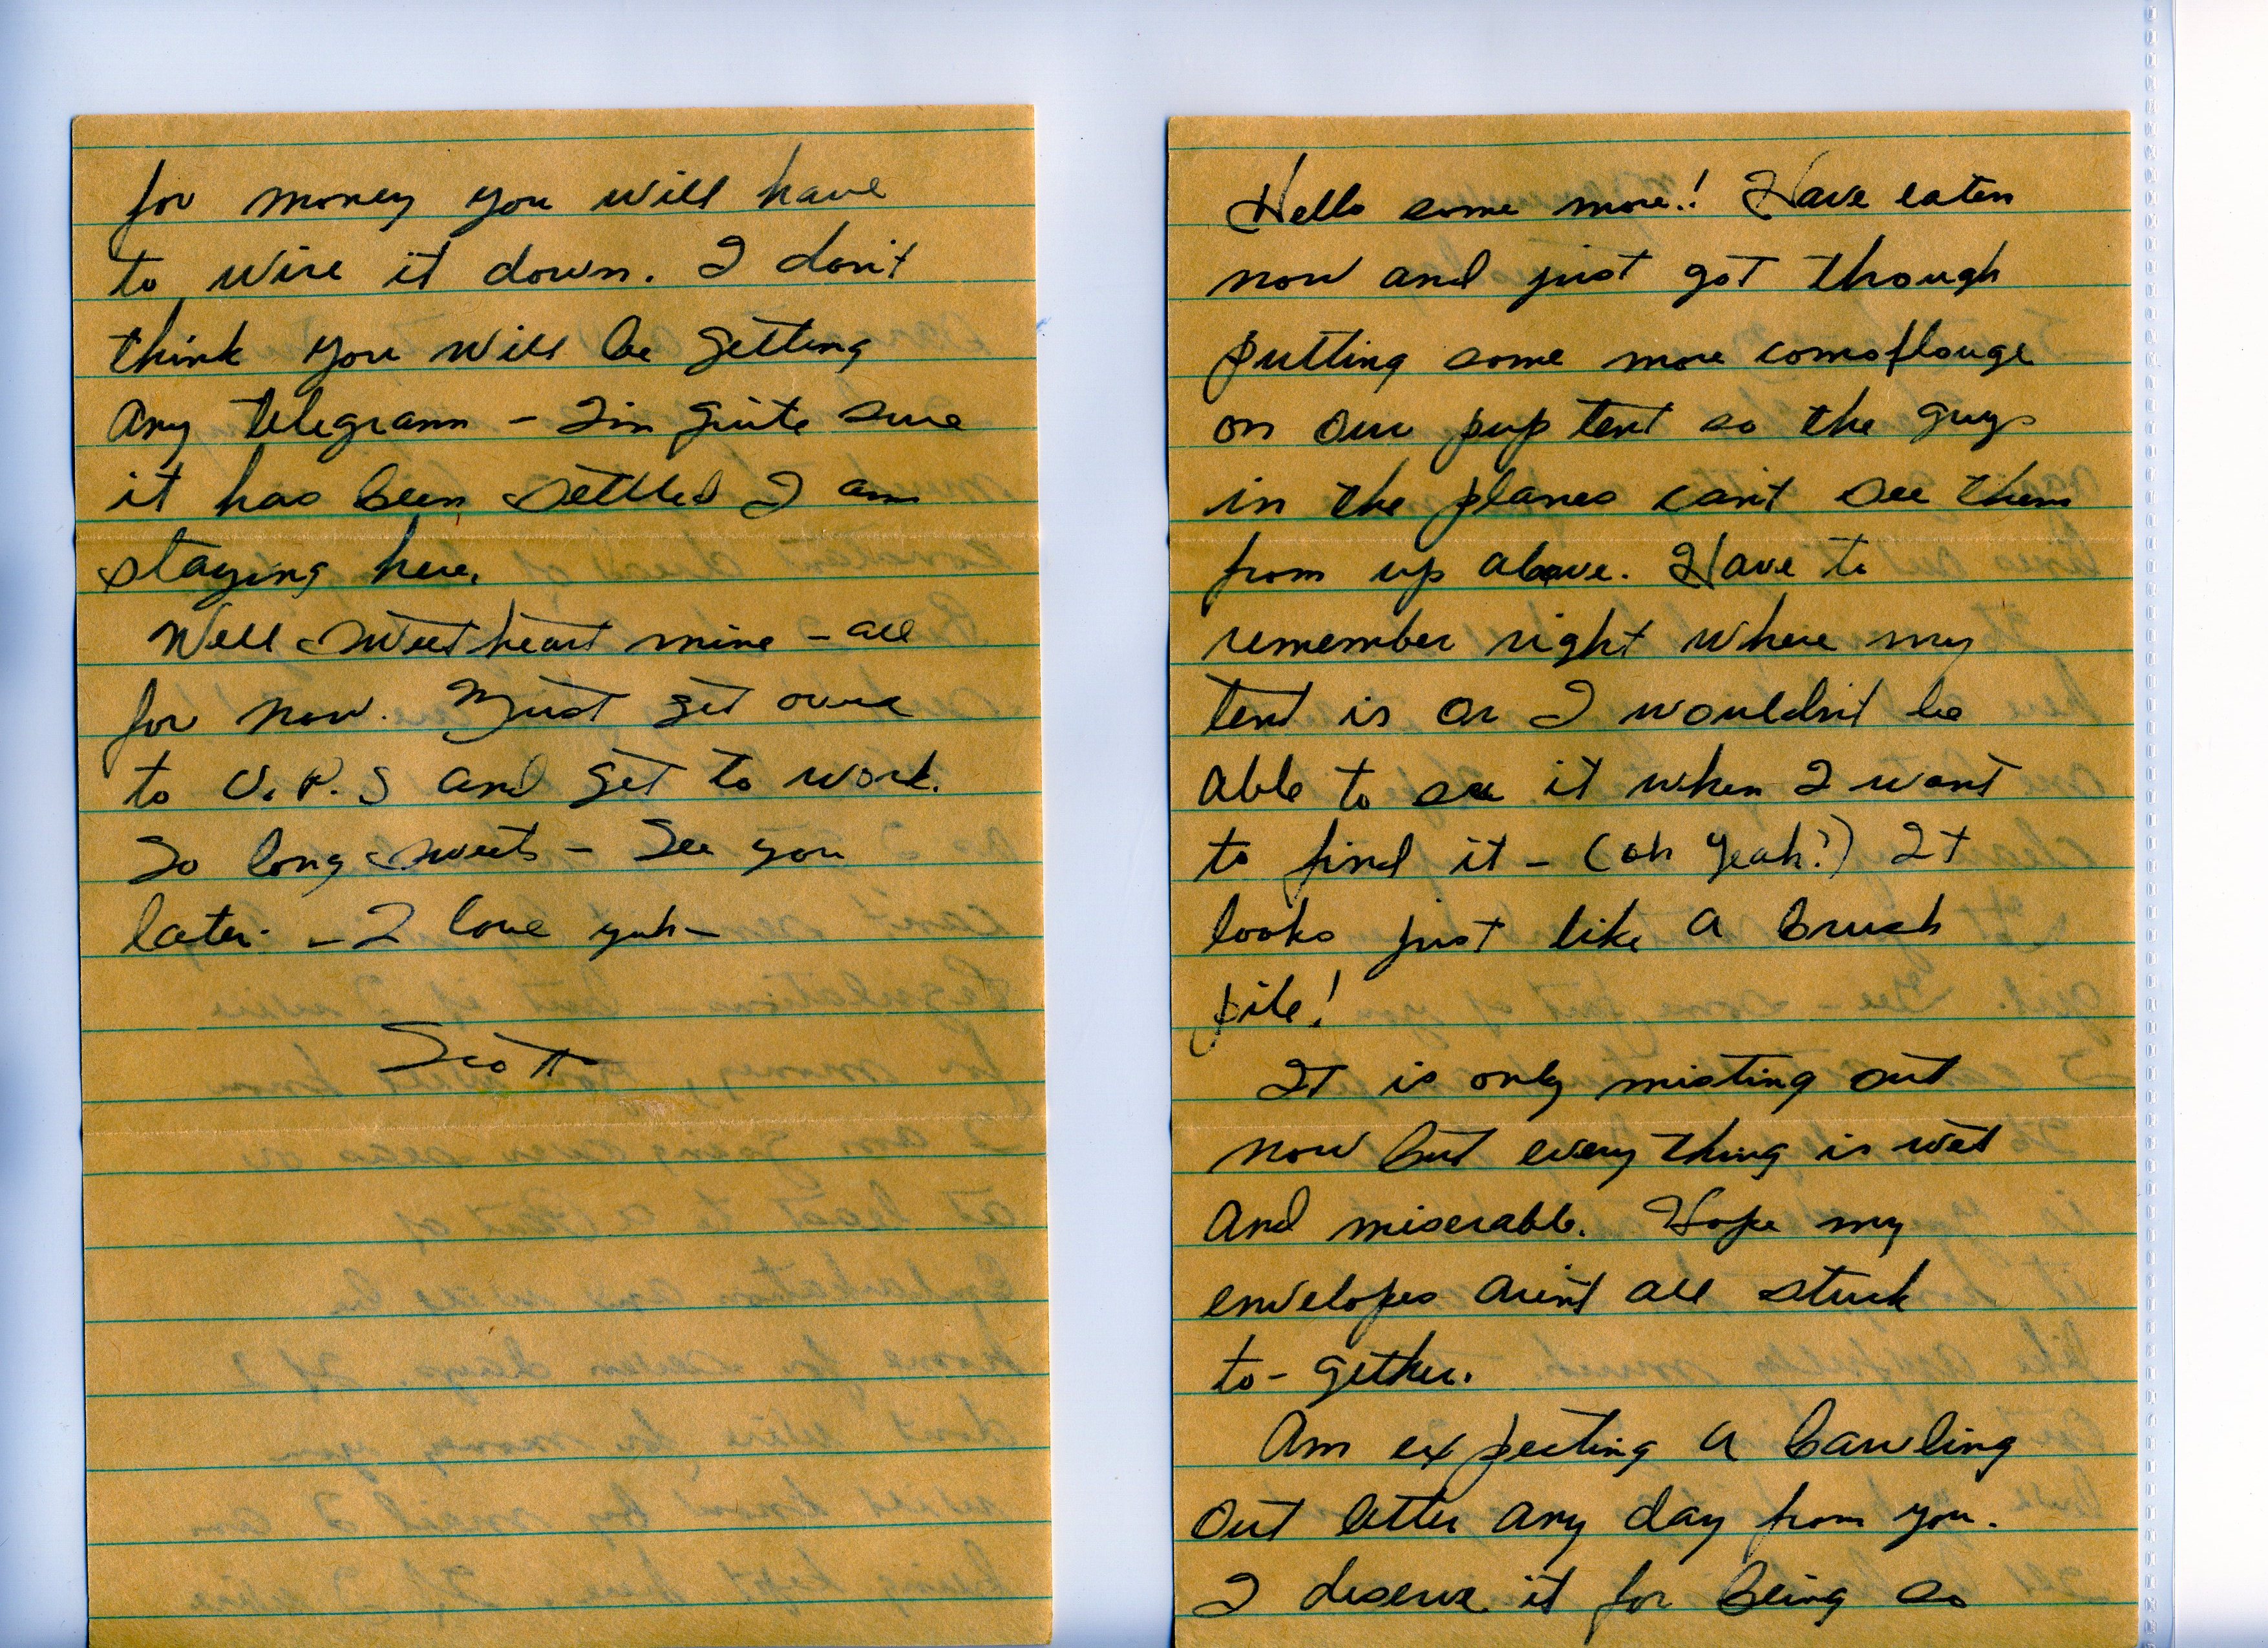 for money you will have
to wire it down. I don't
think you will be getting
any telegram - I'm quite sure
it has been settled I am
staying here.
Well sweetheart mine - all
for now. Must get over
to O.P.S and get to work.
So long sweets - See you
later. - I love yuh -
Scott
Hello some more!! Have eaten
now and just got though
putting some more comoflouge
on our pup tent so the guys
in the planes can't see them
from up above. Have to
remember right where my
tent is or I wouldn't be
able to see it when I want
to find it - (oh yeah?) It
looks just like a brush
pile!
It is only misting out
now but every thing is wet
and miserable. Hope my
envelopes arent all stuck
to-gether.
Am expecting a bawling
out letter any day from you.
I deserve it for being so